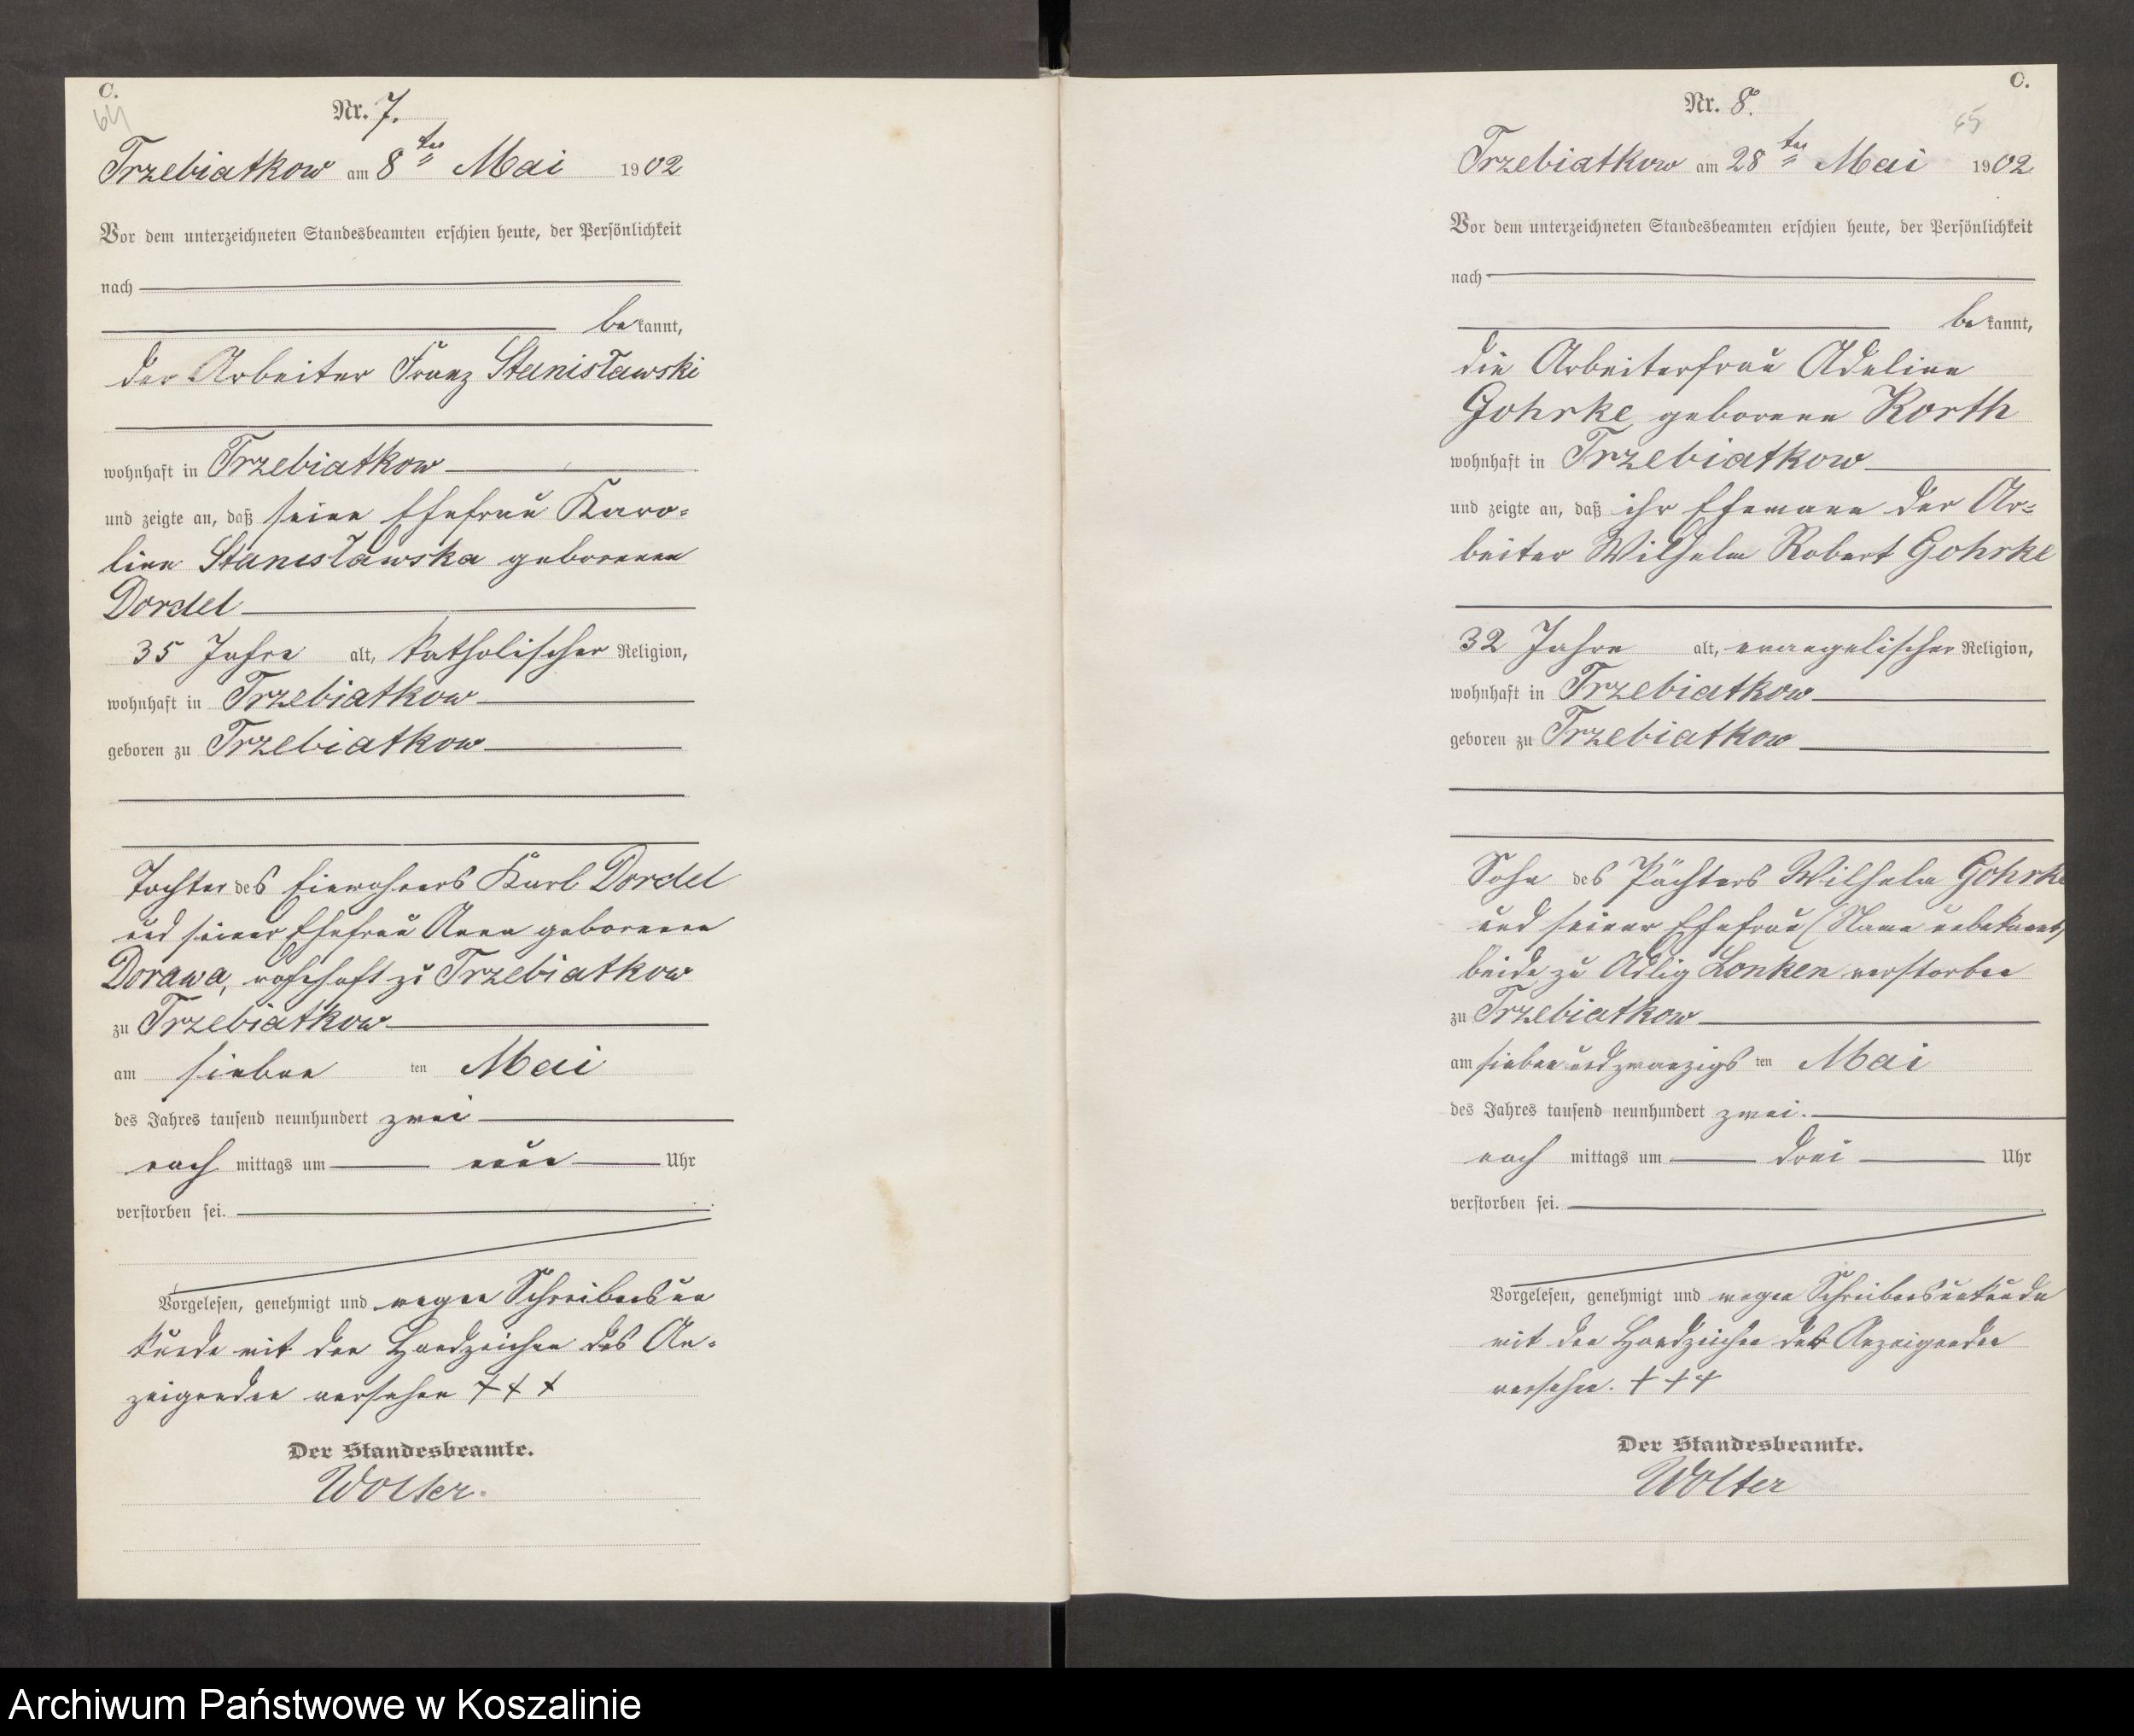 C.
64
Nr. 7.
Trzebiatkow am 8ten Mai 1902
Vor dem unterzeichneten Standesbeamten erschien heute, der Persönlichkeit
nach
bekannt,
der Arbeiter Franz Stanisławski
wohnhaft in Trzebiatkow
und zeigte an, daß seine Ehefrau Karo-
line Stanisławska geborenen
Dordel
35 Jahre alt, katholischer Religion,
wohnhaft in Trzebiatkow
geboren zu Trzebiatkow
Tochter des Einwohners Karl Dordel
und seiner Ehefrau Anna geborenen
Dorawa, wohnhaft zu Trzebiatkow
zu Trzebiatkow
am sieben ten Mai
des Jahres tausend neunhundert zwei
nach mittags um neun Uhr
verstorben sei.
Vorgelesen, genehmigt und wegen Schreibensun
kunde mit den Handzeichen des An-
zeigenden versehen + + +
Der Standesbeamte.
Wolter.
C.
65
Nr. 8.
Trzebiatkow am 28ten Mai 1902
Vor dem unterzeichneten Standesbeamten erschien heute, der Persönlichkeit
nach
bekannt,
die Arbeiterfrau Adeline
Gohrke geborene Korth
wohnhaft in Trzebiatkow
und zeigte an, daß ihr Ehemann der Ar-
beiter Wilhelm Robert Gohrke
32 Jahre alt, evangelischer Religion,
wohnhaft in Trzebiatkow
geboren zu Trzebiatkow
Sohn des Pächters Wilhelm Gohrke
und seiner Ehefrau (Name unbekannt)
beide zu Adlig Lonken verstorben
zu Trzebiatkow
am siebenundzwanzigs ten Mai
des Jahres tausend neunhundert zwei.
nach mittags um drei Uhr
verstorben sei.
Vorgelesen, genehmigt und wegen Schreibensunkunde
mit den Handzeichen der Anzeigenden
versehen. + + +
Der Standesbeamte.
Wolter
Archiwum Państwowe w Koszalinie